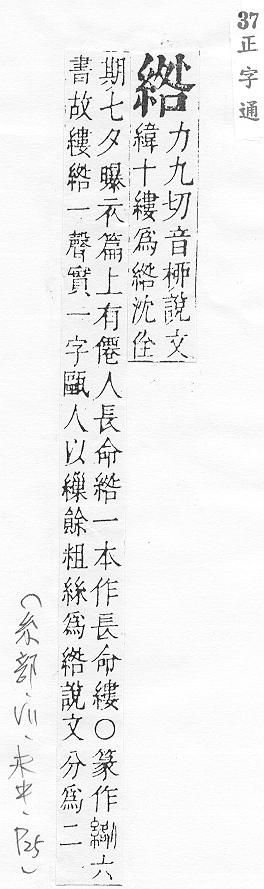 37
正字通
綹
力九切音桺說文
緯十縷爲綹沈佺
期七夕曝衣篇上有僊人長命綹一本作長命縷〇篆作六
書故縷綹一聲實一字甌人以繅餘粗絲爲綹說文分爲二
（糸部、未中、P25）